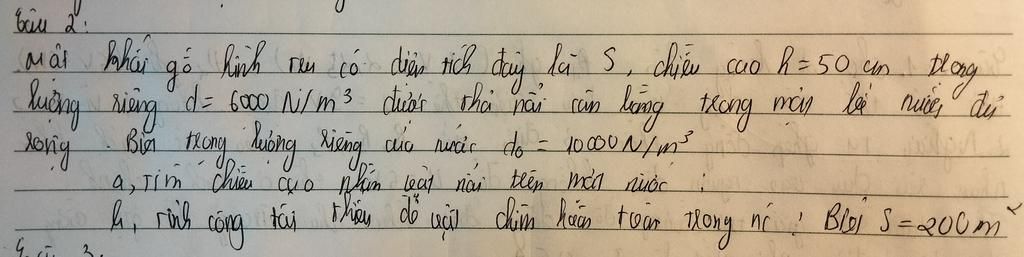 Câu 2:
Một khối gỗ hình trụ có diện tích đáy là S, chiều cao h = 50 cm trọng
lượng riêng d = 6000 N/m³ được thả nổi cân bằng trong một bể nước đủ
rộng. Biết trọng lượng riêng của nước d₀ = 10000 N/m³
a, Tìm chiều cao phần vật nổi trên mặt nước.
b, Tính công tối thiểu để vật chìm hoàn toàn trong nó. Biết S = 200m²